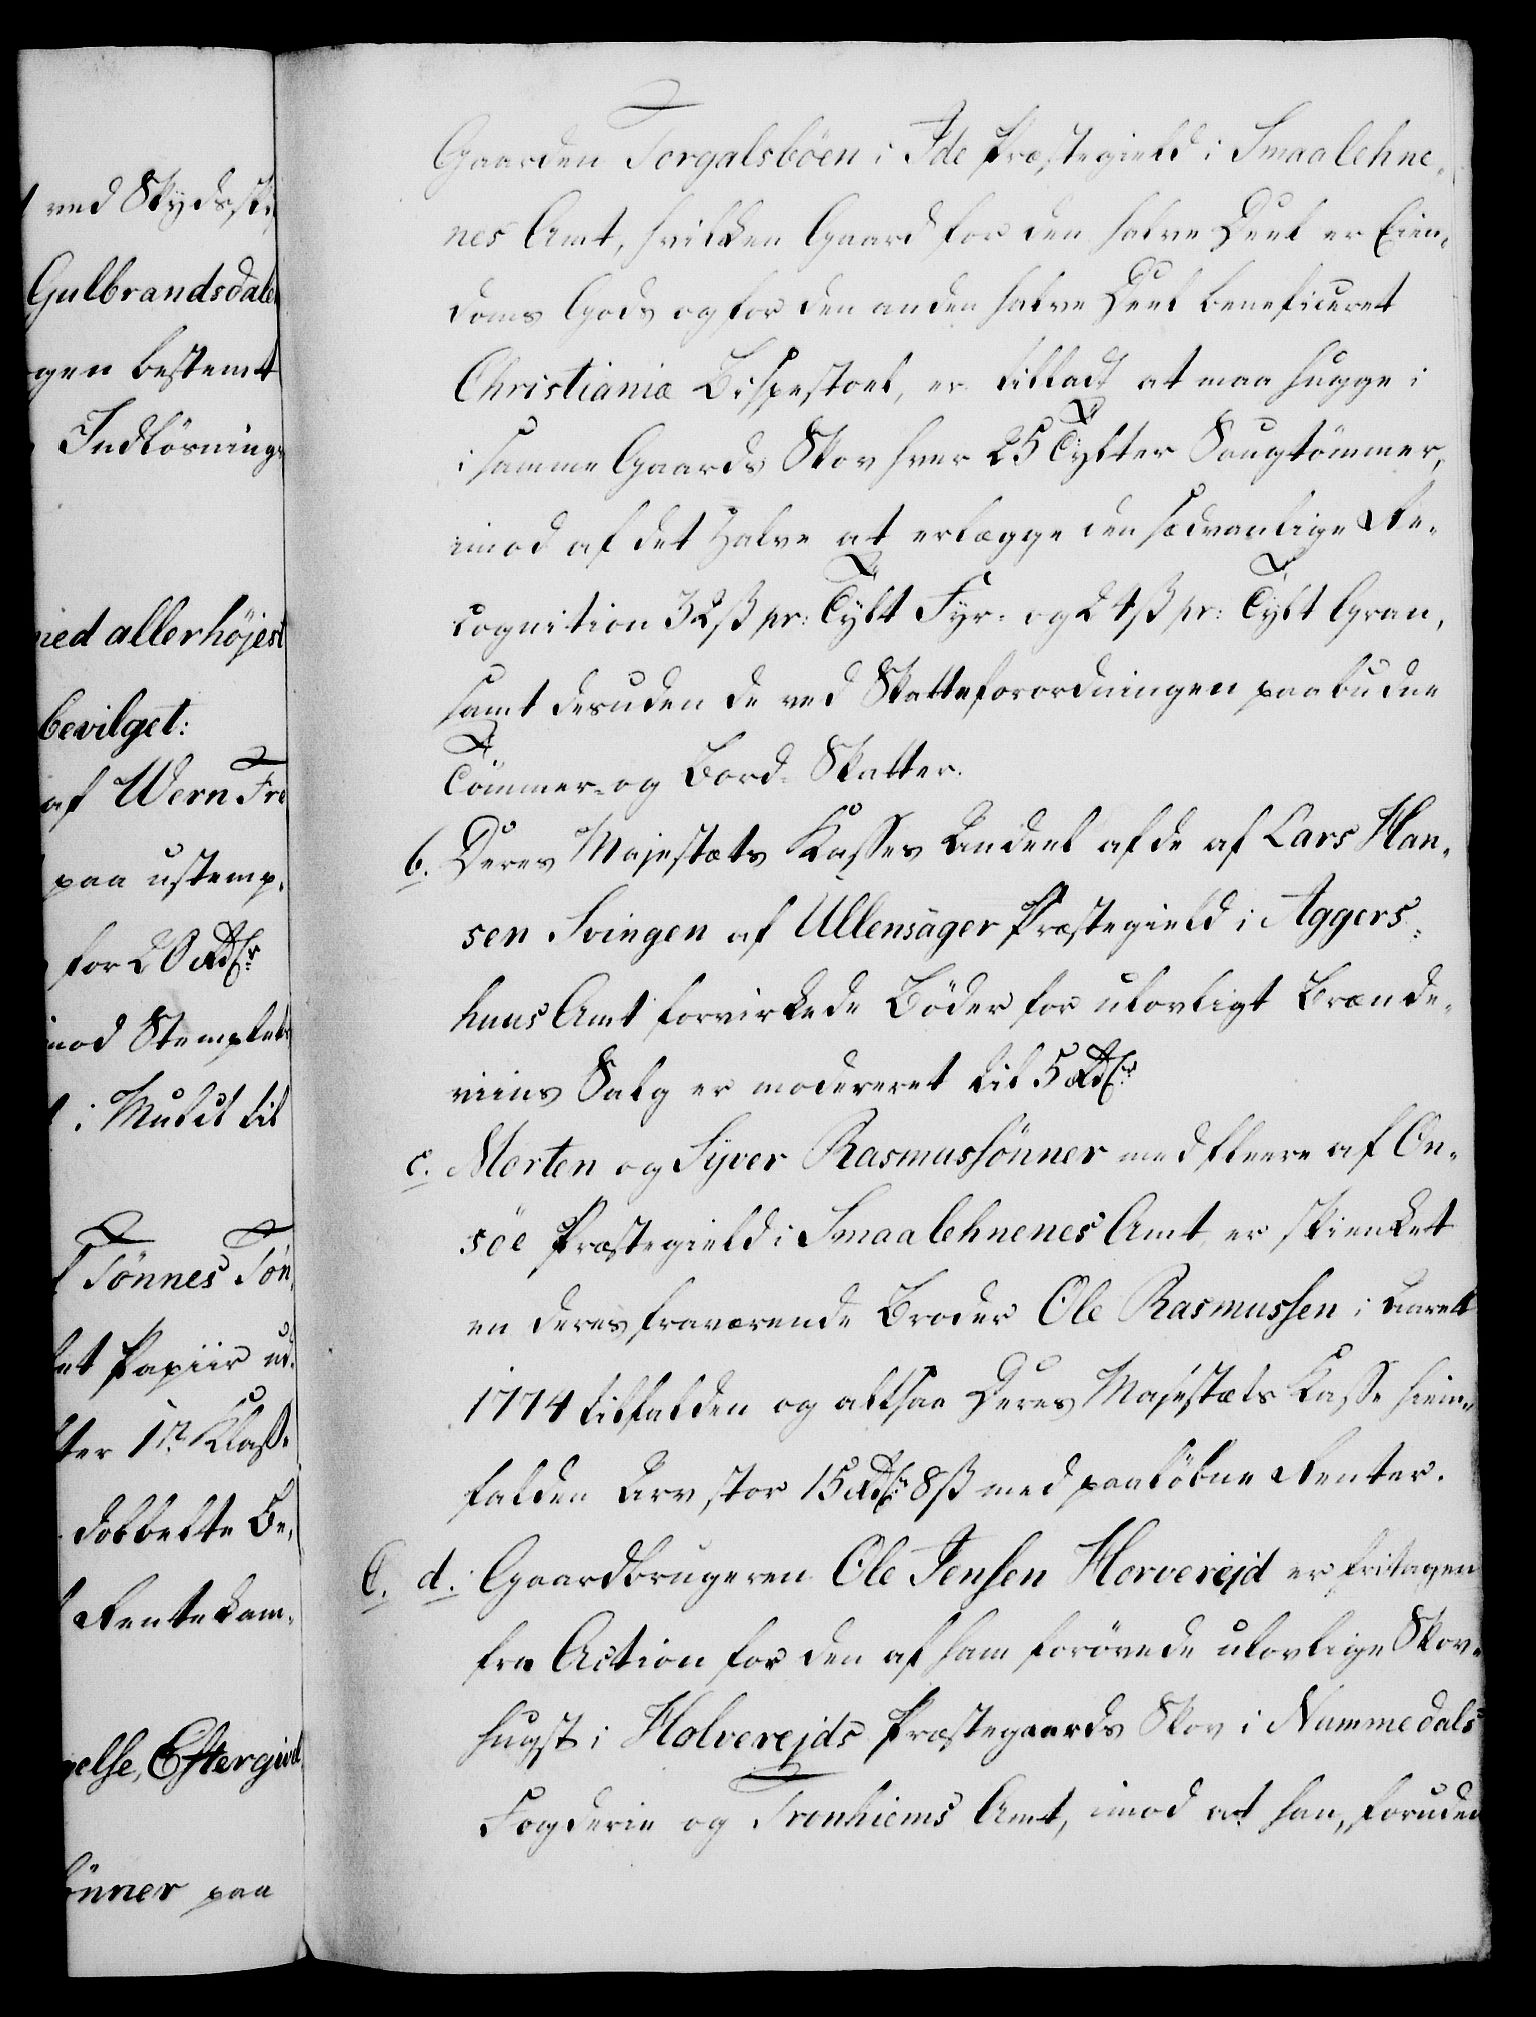 ved Skydsski
Gulbrandsdale
gen bestemt
Indlösnings
med allerhöjest
bevilget:
af Wern Fre
paa ustemp-
for 20 Rdlr
mod Stemplets
i Mulct til
Tönnes Tön-
let Papiir ud-
ter 1ste Klasse
dobbelte Be-
Rentekam-
else, Eftergivel
önner paa
Gaarden Torgalsböen i Ide Præstegield i Smaalehne-
nes Amt, hvilken Gaard for den halve Deel er Eien-
doms Gods og for den anden halve Deel beneficeret
Christianiæ Bispestoel, er tilladt at maa hugge i
i samme Gaards Skov hver 25 Tylter Saugtömmer,
imod af det Halve at erlægge den sædvanlige Re-
cognition 32 ß pr: Tylt Fyr- og 24 ß pr: Tylt Gran,
samt desuden de ved Skatteforordningen paabudne
Tömmer- og Bord-Skatter.
b. Deres Majestæts Kasses Andeel af de af Lars Han-
sen Svingen af Ullensager Præstegield i Aggers-
huus Amt forvirkede Böder for ulovligt Brænde-
viins Salg er modereret til 5 Rdlr
c. Morten og Syver Rasmussönner med fleere af On-
söe Præstegield i Smaalehnenes Amt er skienket
en deres fraværende Broder Ole Rasmussen i Aaret
1774 tilfalden og altsaa Deres Majestæts Kasse hiem-
falden Arv, stor 15 Rdlr 8 ß med paalöbne Renter.
C. d. Gaardbrugeren Ole Jensen Horverejd er fritagen
fra Action for den af ham forövede ulovlige Skov-
hugst i Holverejds Præstegaards Skov i Nummedals
Fogderie og Tronhiems Amt, imod at han, foruden